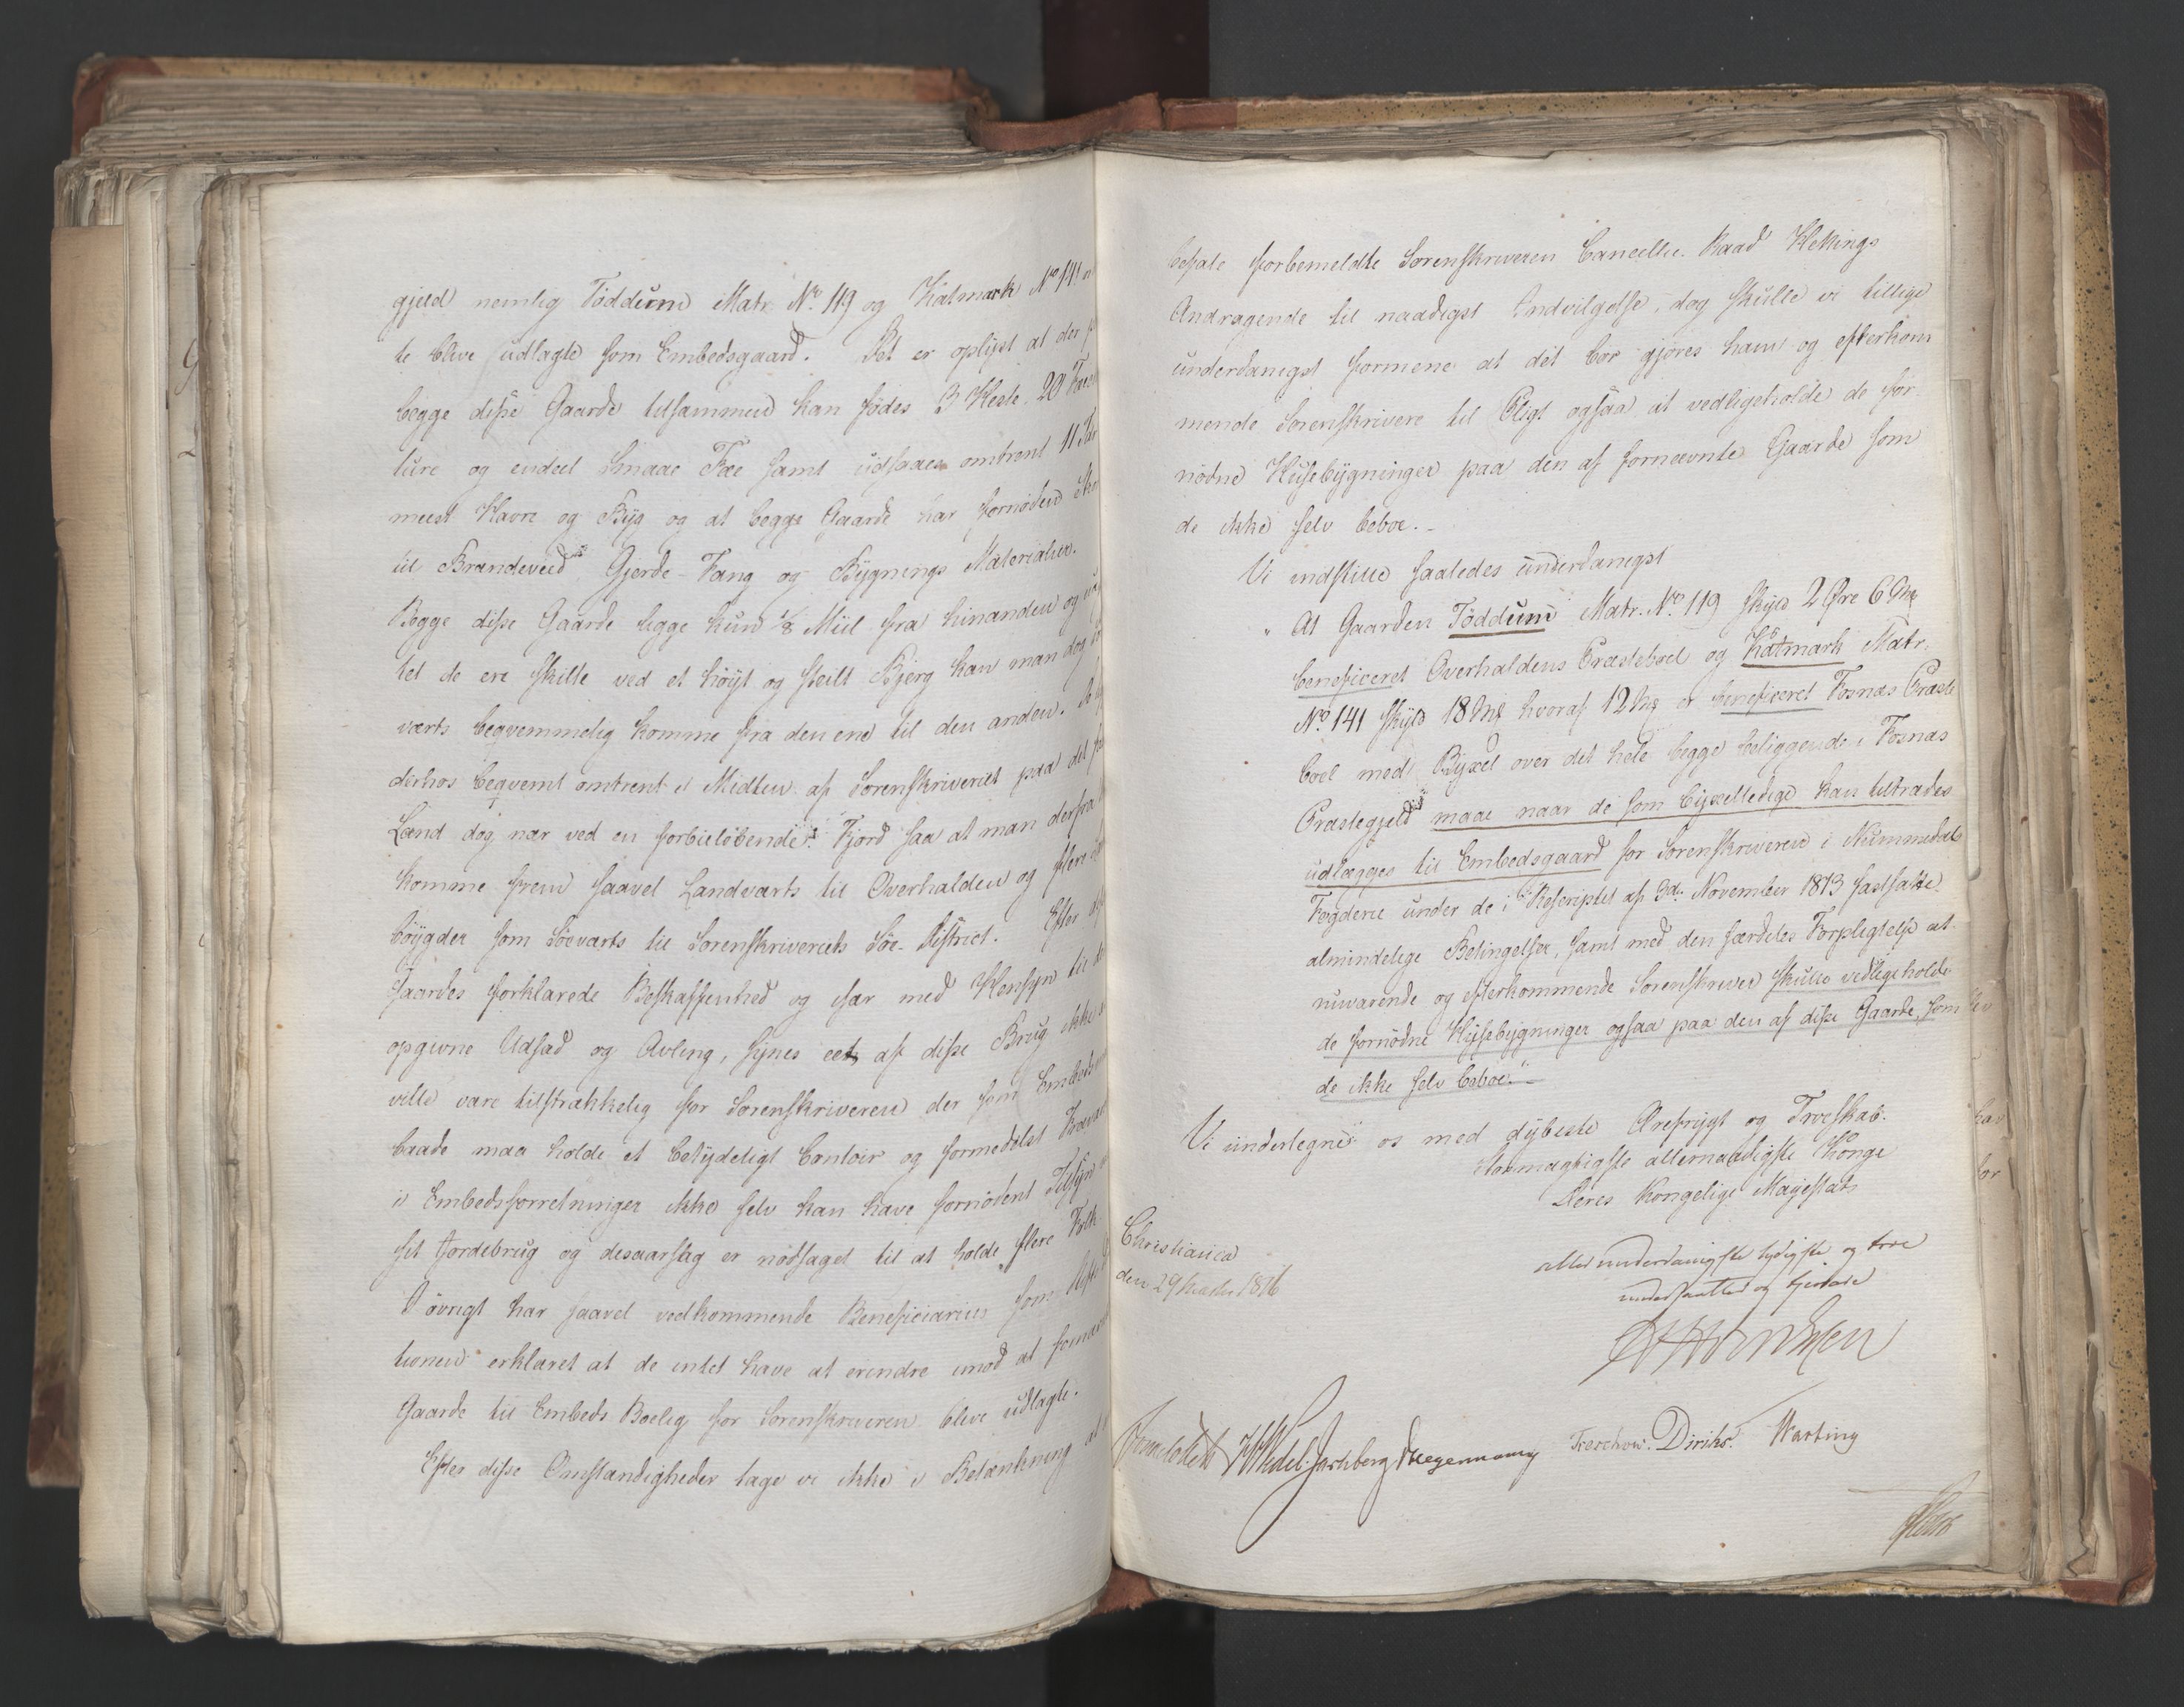 gjeld nemlig Töddum Matr. No. 119 og Katmark No 141
te blive udlagte som Embedsgaard. Det er oplyst at der
begge disse Gaarde tilsammen kan fødes 3 Heste 20
ture og endeel Smaae Fæe samt udsaaes omtrent 11
meest Havre og Byg og at begge Gaarde har fornöden
til Brændeveed Gjerde-Fang og Bygnings Materialier.
Begge disse Gaarde ligge kun 1/8 Miil fra hinanden og
tet de ere skilte ved et höyt og steilt Bjerg kan man dog
værts beqvemmelig komme fra den ene til den anden.
derhos beqvemt omtrent i Midten af Sorenskriveriet paa det
Land dog nær ved en forbieløbende Fjord saa at man derfra
komme frem saavel Landværts til Overhalden og flere
böygder som Söeværts til Sorenskriveriets Söe-District. Efter
Gaardes forklarede Beskaffenhed og især med Hensyn til
opgivne Udsæd og Avling, synes eet af disse Brug ikke
ville være tilstrækkelig for Sorenskriveren der som
baade maa holde et betydeligt Contoir og formedelst
i Embedsforretninger ikke selv kan have fornödent Tilsyn
sit Jordebrug og desaarsag er nödsaget til at holde flere Folk
I övrigt har saavel vedkommende Beneficiarius som
tionen erklæret at de intet have at erindre imod at
Gaarde til Embeds Boelig for Sorenskriveren blive udlagte.
Efter disse Omstændigheder tage vi ikke i Betænkning at
befale forbemeldte Sorenskriveren Cancellie-Raad Hekings
Andragende til naadigst Indvilgelse, dog skulle vi tillige
underdanigst formene at det bør gjøres ham og efterkom
mende Sorenskrivere til Pligt ogsaa at vedligeholde de for
nödne Husebygninger paa den af fornævnte Gaarde som
de ikke selv beboe.-
Vi indstille saaledes underdanigst
" At Gaarden Töddum Matr. No. 119 skyld 2 Øre 6 Mk
beneficeret Overhaldens Præsteboel og Katmark Matr.
No. 141 skyld 18 Mk hvoraf 12 Mk er beneficeret Fosnæs Præste
boel med Byxel over det hele begge beliggende i Fosnæs
Præstegjeld maae naar de som byxelledige kan tiltrædes
udlægges til Embedsgaard for Sorenskriveren i Nummedals
Fogderie under de i Rescriptet af 3d. November 1813 fastsatte
almindelige Betingelser, samt med den særdeles Forpligtelse at
nuværende og efterkommende Sorenskriver skulle vedligeholde
de fornödne Husebygninger ogsaa paa den af disse Gaarde, som
de ikke selv beboe."
Vi undertegne os med dybeste Ærefrygt og Troeskab.
Stormægtigste allernaadigste Konge
Deres Kongelige Majestæts
allerunderdanigste lydigste og troe
undersaatter og tjenere
Christiania
den 29 1816
Sommerhielm HWedel-Jarlsberg DHegermann Treschow. Diriks. Wasting